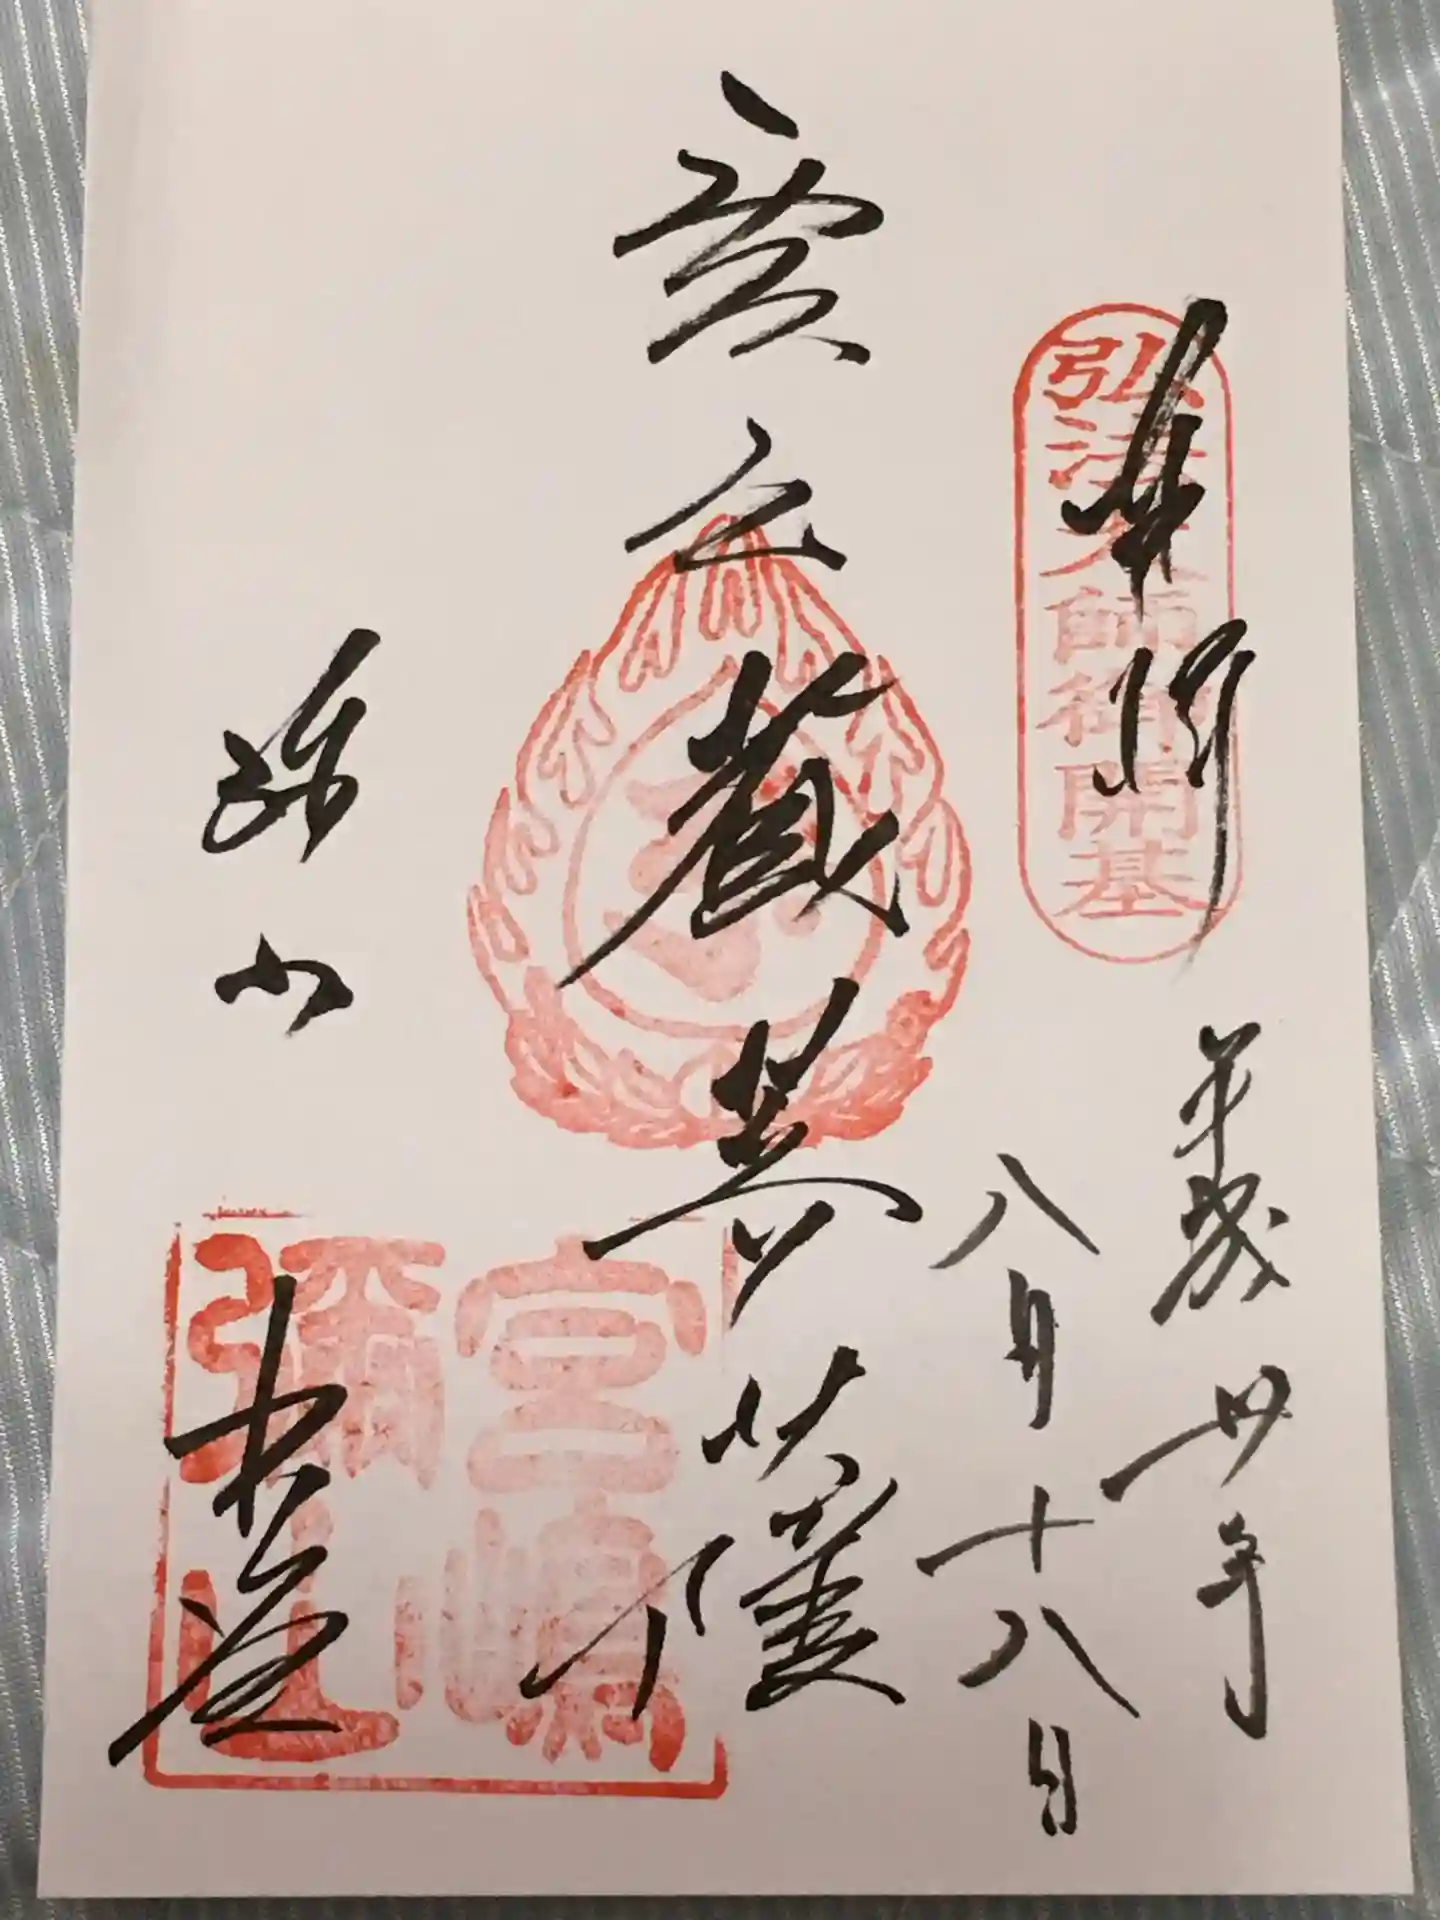 奉拝
弘法大師御開基
平成卅年
八月十八日
虚空蔵菩薩
弥山
本堂
宮嶋
彌山